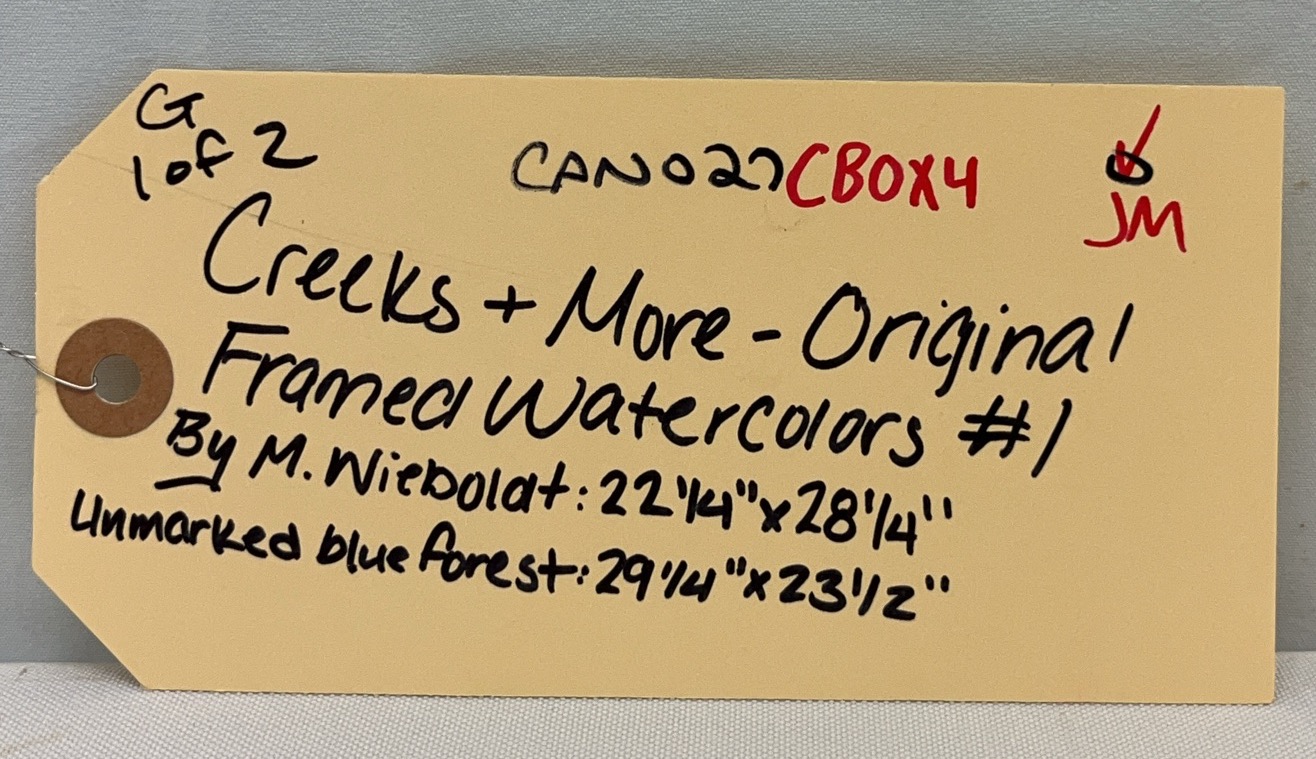 G
1 of 2
CAN027 CBOX4
JM
Creeks + More - Original
Framed Watercolors #1
By M. Wieboldt: 22 1/4" x 28 1/4"
Unmarked blue forest: 29 1/4" x 23 1/2"